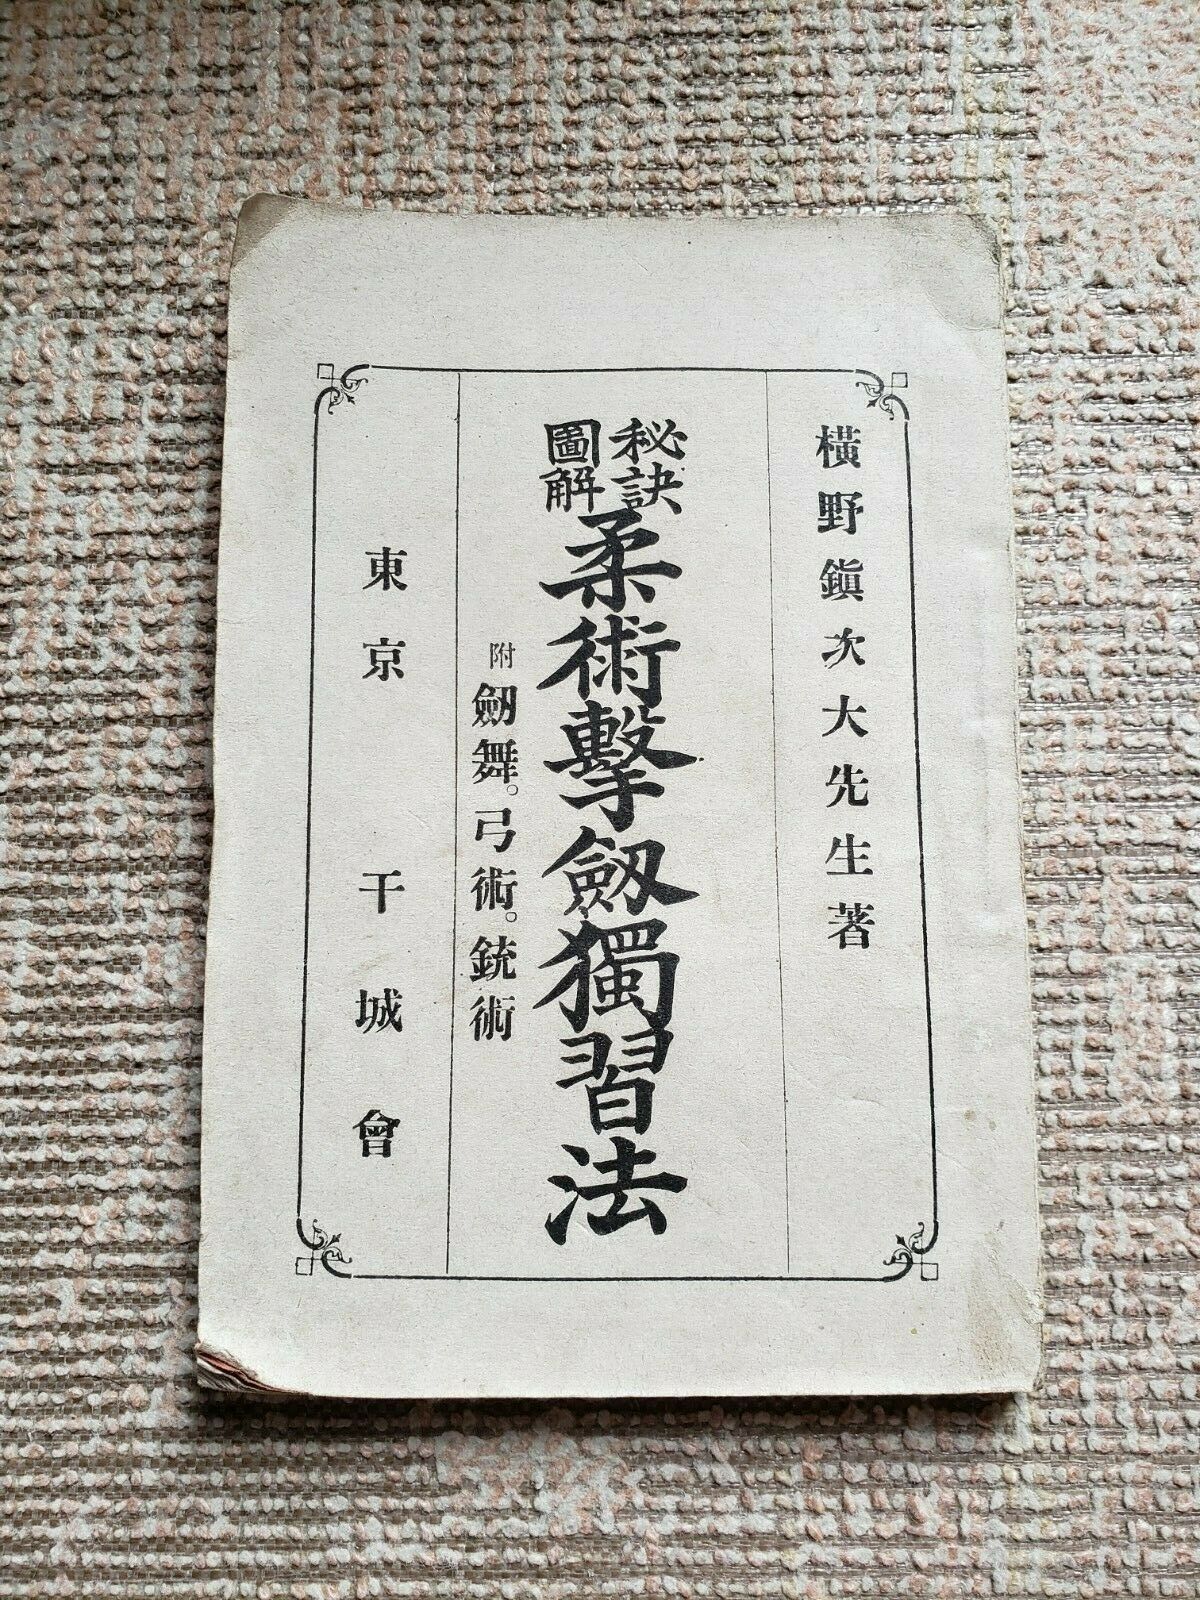 橫野鎭次大先生著
秘訣
圖解
柔術擊劔獨習法
附劔舞。弓術。銃術
東京 干城會